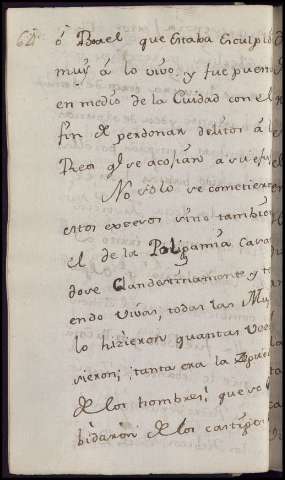 62
ó Bael que Estaba Esculpido
muy á lo vivo, y fue puesto
en medio de la Ciudad con el
fin de perdonar delitos á l
Reos q.e se acojian á su efi
No solo se cometiero
estos excesos sino tambien
el de la Poligamia Casa
dose Clandestinamente, y t
endo Vivas, todas las Mu
lo hizieron quantas vez
sieron; tanta era la
de los hombres, que se ol
bidaron de los castigos